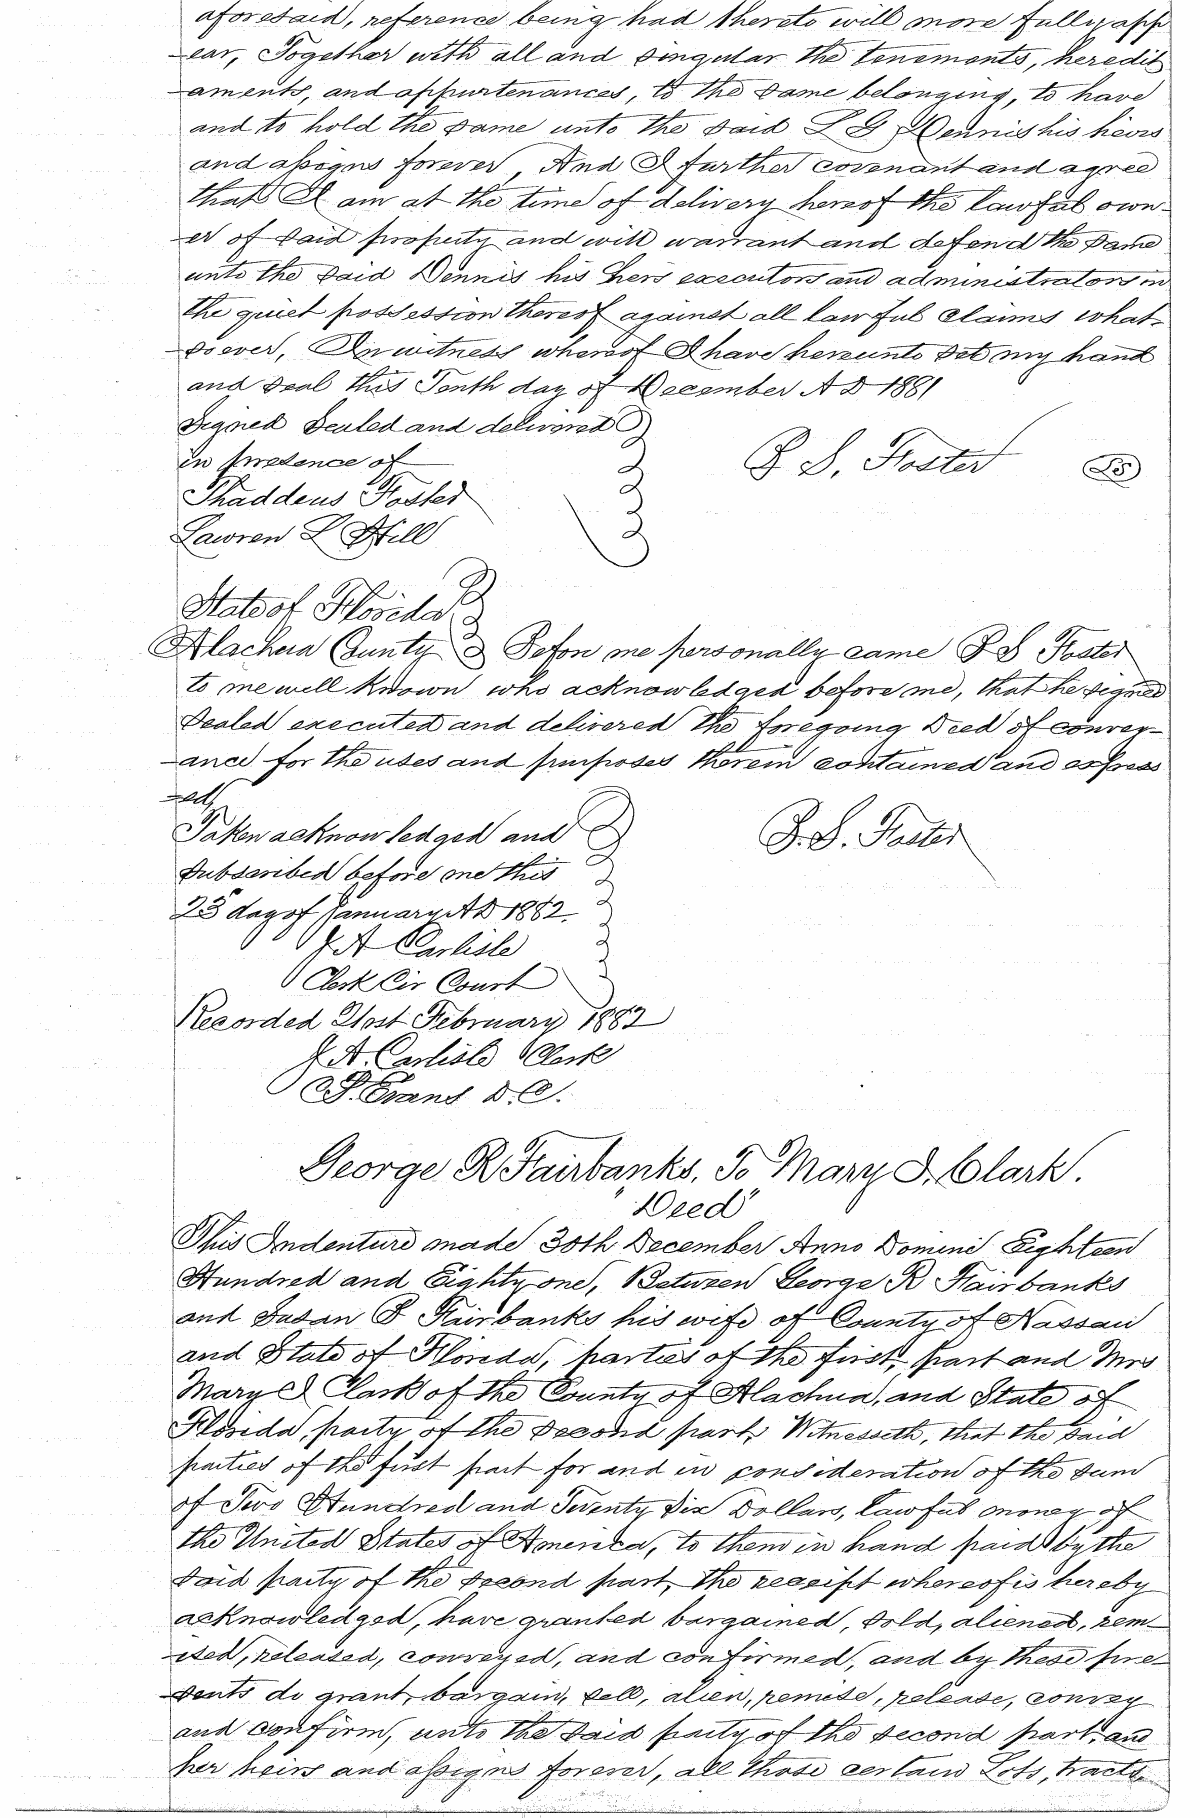 aforesaid, reference being had thereto will more fully app
-ear, Together with all and singular the tenements, heredit
-aments, and appurtenances, to the same belonging, to have
and to hold the same unto the said L G Dennis his heirs
and assigns forever, And I further covenant and agree
that I am at the time of delivery hereof the lawful own-
-er of said property and will warrant and defend the same
unto the said Dennis his heirs executors and administrators in
the quiet possession thereof against all lawful claims what-
-soever, In witness whereof I have hereunto set my hand
and seal this Tenth day of December A D 1881
Signed Sealed and delivered
in presence of
F. S. Foster LS
Thaddeus Foster
Lawren L Hill
State of Florida
Alachua County Before me personally came F S Foster
to me well known who acknowledged before me, that he signed
Sealed executed and delivered the foregoing Deed of convey-
-ance for the uses and purposes therein contained and express
-ed,
Taken acknowledged and F. S. Foster
Subscribed before me this
23 day of January A D 1882.
J A Carlisle
Clerk Cir Court
Recorded 21st February 1882
J. A. Carlisle Clerk
Evans D. C.
George R Fairbanks, To Mary I. Clark.
"Deed"
This Indenture made 30th December Anno Domini Eighteen
Hundred and Eighty one, Between George R Fairbanks
and Susan B Fairbanks his wife of County of Nassau
and State of Florida, parties of the first, part and Mrs
Mary I Clark of the County of Alachua, and State of
Florida, party of the second part, Witnesseth, that the said
parties of the first part for and in consideration of the sum
of Two Hundred and Twenty Six Dollars, lawful money of
the United States of America, to them in hand paid by the
said party of the second part, the receipt whereof is hereby
acknowledged, have granted bargained, sold, aliened, rem-
-ised, released, conveyed, and confirmed, and by these pre-
-sents do grant, bargain, sell, alien, remise, release, convey
and confirm, unto the said party of the second part, and
her heirs and assigns forever, all those certain Lots, tracts